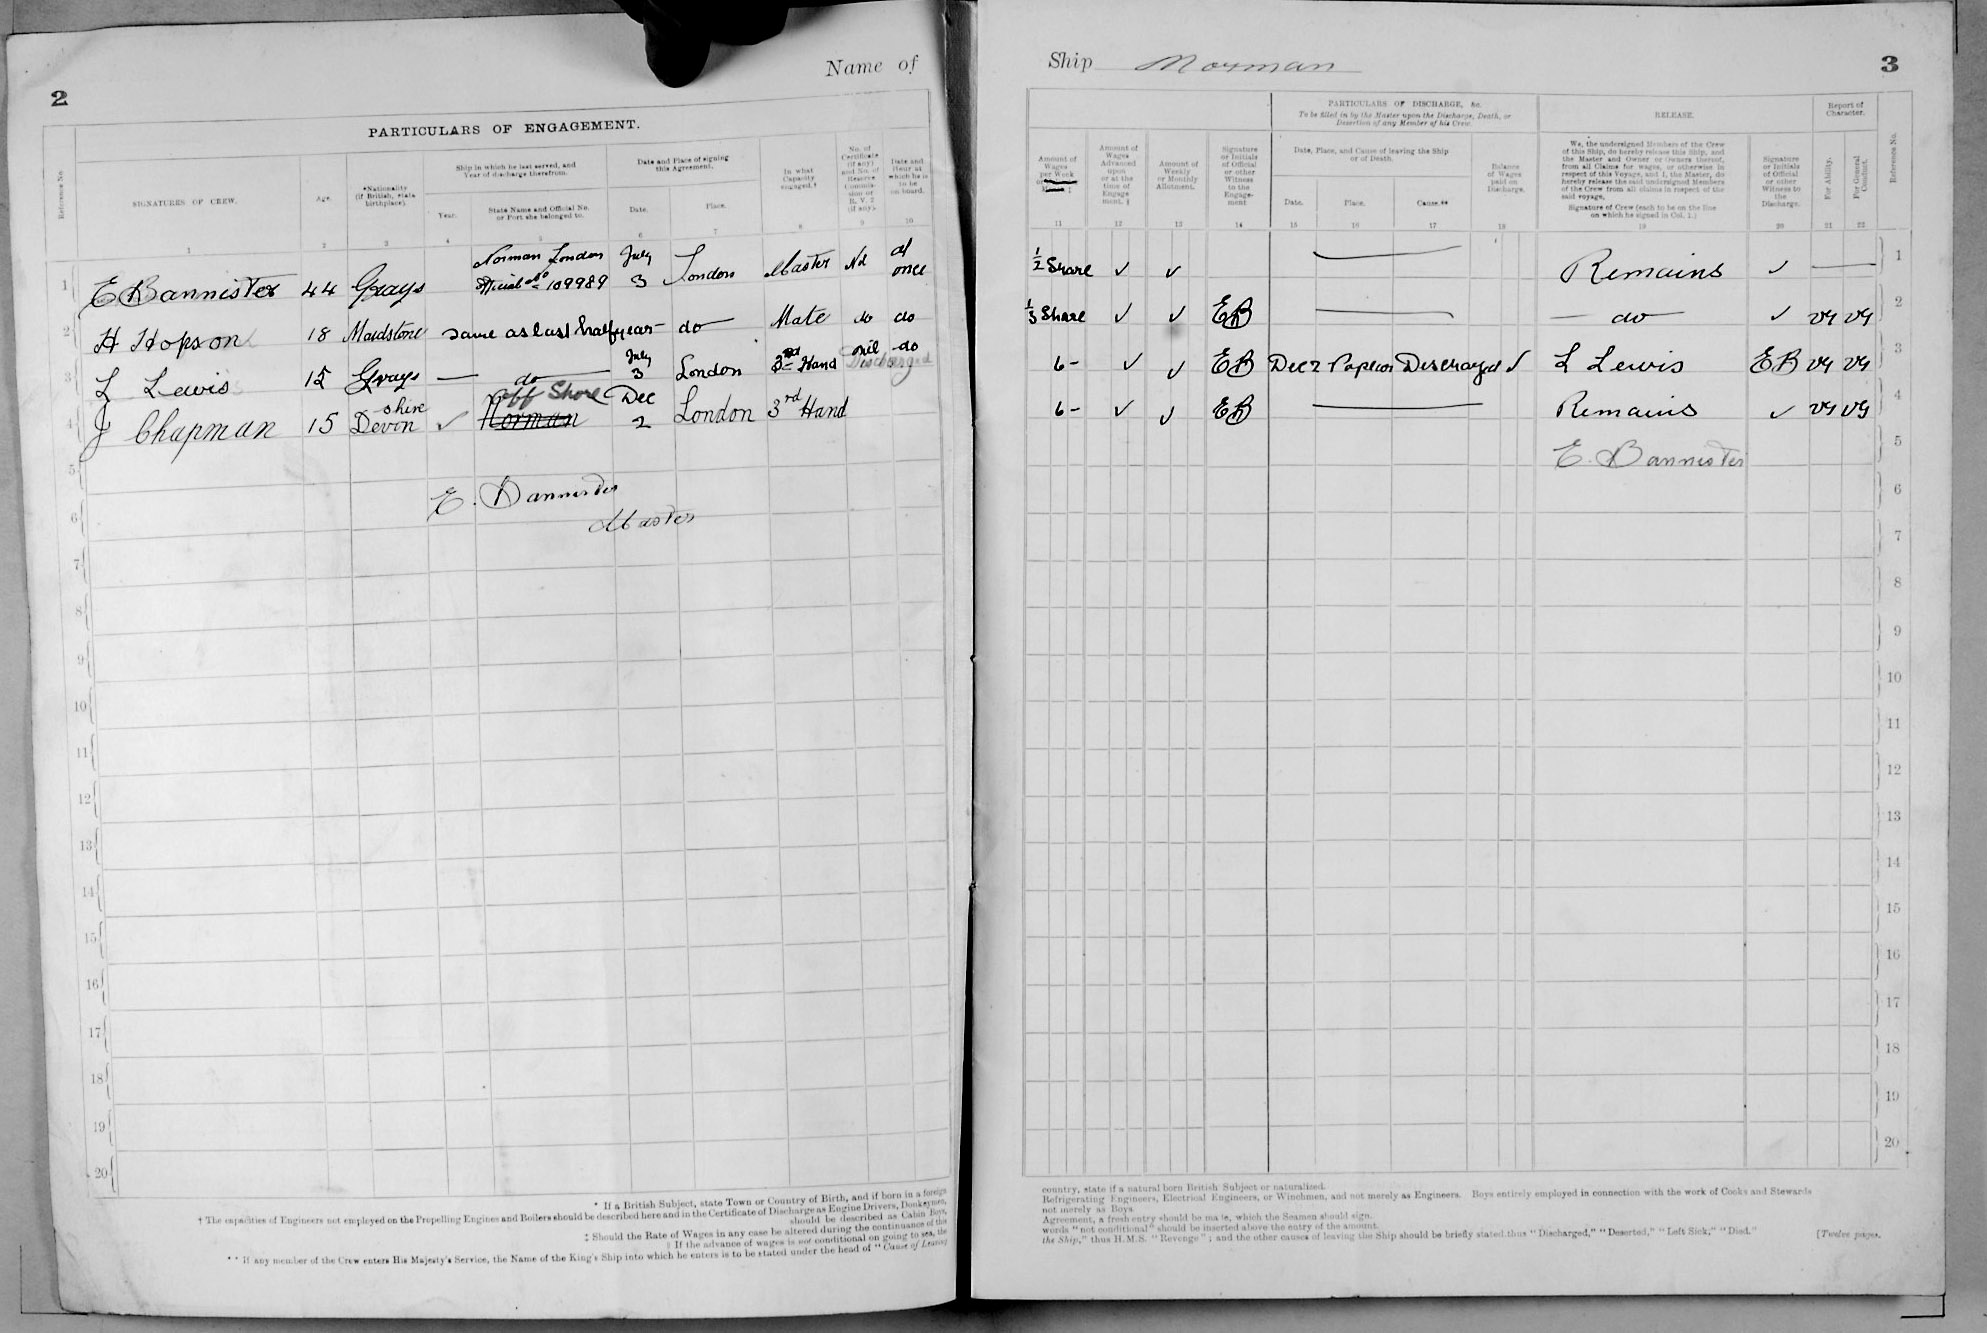 2
Name of
PARTICULARS OF ENGAGEMENT.
Reference No.
SIGNATURES OF CREW.
Age.
*Nationality
(if British, state
birthplace).
Ship in which he last served, and
Year of discharge therefrom.
Year.
State Name and Official No.
or Port she belonged to.
Date and Place of signing
this Agreement.
Date.
Place.
In what
Capacity
engaged.†
No. of
Certificate
(if any)
and No. of
Reserve
Commis-
sion or
R. V. 2
(if any).
Date and
Hour at
which he is
to be
on board.
1 2 3 4 5 6 7 8 9 10
1 E Bannister 44 Grays Norman London Official No 109989 July 3 London Master Nil at once
2 H Hopson 18 Maidstone same as last half year do Mate do do
3 L Lewis 15 Grays — do — July 3 London 3rd Hand nil do
Discharged
4 J Chapman 15 Devonshire ✓ off Shore Norman Dec 2 London 3rd Hand
5
E. Bannister
6
Master
7
8
9
10
11
12
13
14
15
16
17
18
19
20
* If a British Subject, state Town or Country of Birth, and if born in a foreign
† The capacities of Engineers not employed on the Propelling Engines and Boilers should be described here and in the Certificate of Discharge as Engine Drivers, Donkeymen,
should be described as Cabin Boys,
‡ Should the Rate of Wages in any case be altered during the continuance of this
‖ If the advance of wages is not conditional on going to sea, the
** If any member of the Crew enters His Majesty's Service, the Name of the King's Ship into which he enters is to be stated under the head of "Cause of Leaving
Ship Norman
3
Amount of
Wages
per Week
Amount of
Wages
Advanced
upon
or at the
time of
Engage
ment. ‖
Amount of
Weekly
or Monthly
Allotment.
Signature
or Initials
of Official
or other
Witness
to the
Engage-
ment
PARTICULARS OF DISCHARGE, &c.
To be filled in by the Master upon the Discharge, Death, or
Desertion of any Member of his Crew.
Date, Place, and Cause of leaving the Ship
or of Death.
Date.
Place.
Cause.**
Balance
of Wages
paid on
Discharge.
RELEASE.
We, the undersigned Members of the Crew
of this Ship, do hereby release this Ship, and
the Master and Owner or Owners thereof,
from all Claims for wages, or otherwise in
respect of this Voyage, and I, the Master, do
hereby release the said undersigned Members
of the Crew from all claims in respect of the
said voyage.
Signature of Crew (each to be on the line
on which he signed in Col. 1.)
Signature
or Initials
of Official
or other
Witness to
the
Discharge.
Report of
Character.
For Ability.
For General
Conduct.
Reference No.
11 12 13 14 15 16 17 18 19 20 21 22
½ Share ✓ ✓ — Remains ✓ — 1
⅓ Share ✓ ✓ EB — do — ✓ VG VG 2
6- ✓ ✓ EB Dec 2 Discharged ✓ L Lewis EB VG VG 3
6- ✓ ✓ EB — Remains ✓ VG VG 4
E. Bannister 5
6
7
8
9
10
11
12
13
14
15
16
17
18
19
20
country, state if a natural born British Subject or naturalized.
Refrigerating Engineers, Electrical Engineers, or Winchmen, and not merely as Engineers. Boys entirely employed in connection with the work of Cooks and Stewards
not merely as Boys.
Agreement, a fresh entry should be made, which the Seamen should sign.
words "not conditional" should be inserted above the entry of the amount.
the Ship," thus H.M.S. "Revenge"; and the other causes of leaving the Ship should be briefly stated thus "Discharged," "Deserted," "Left Sick," "Died."
[Twelve pages.